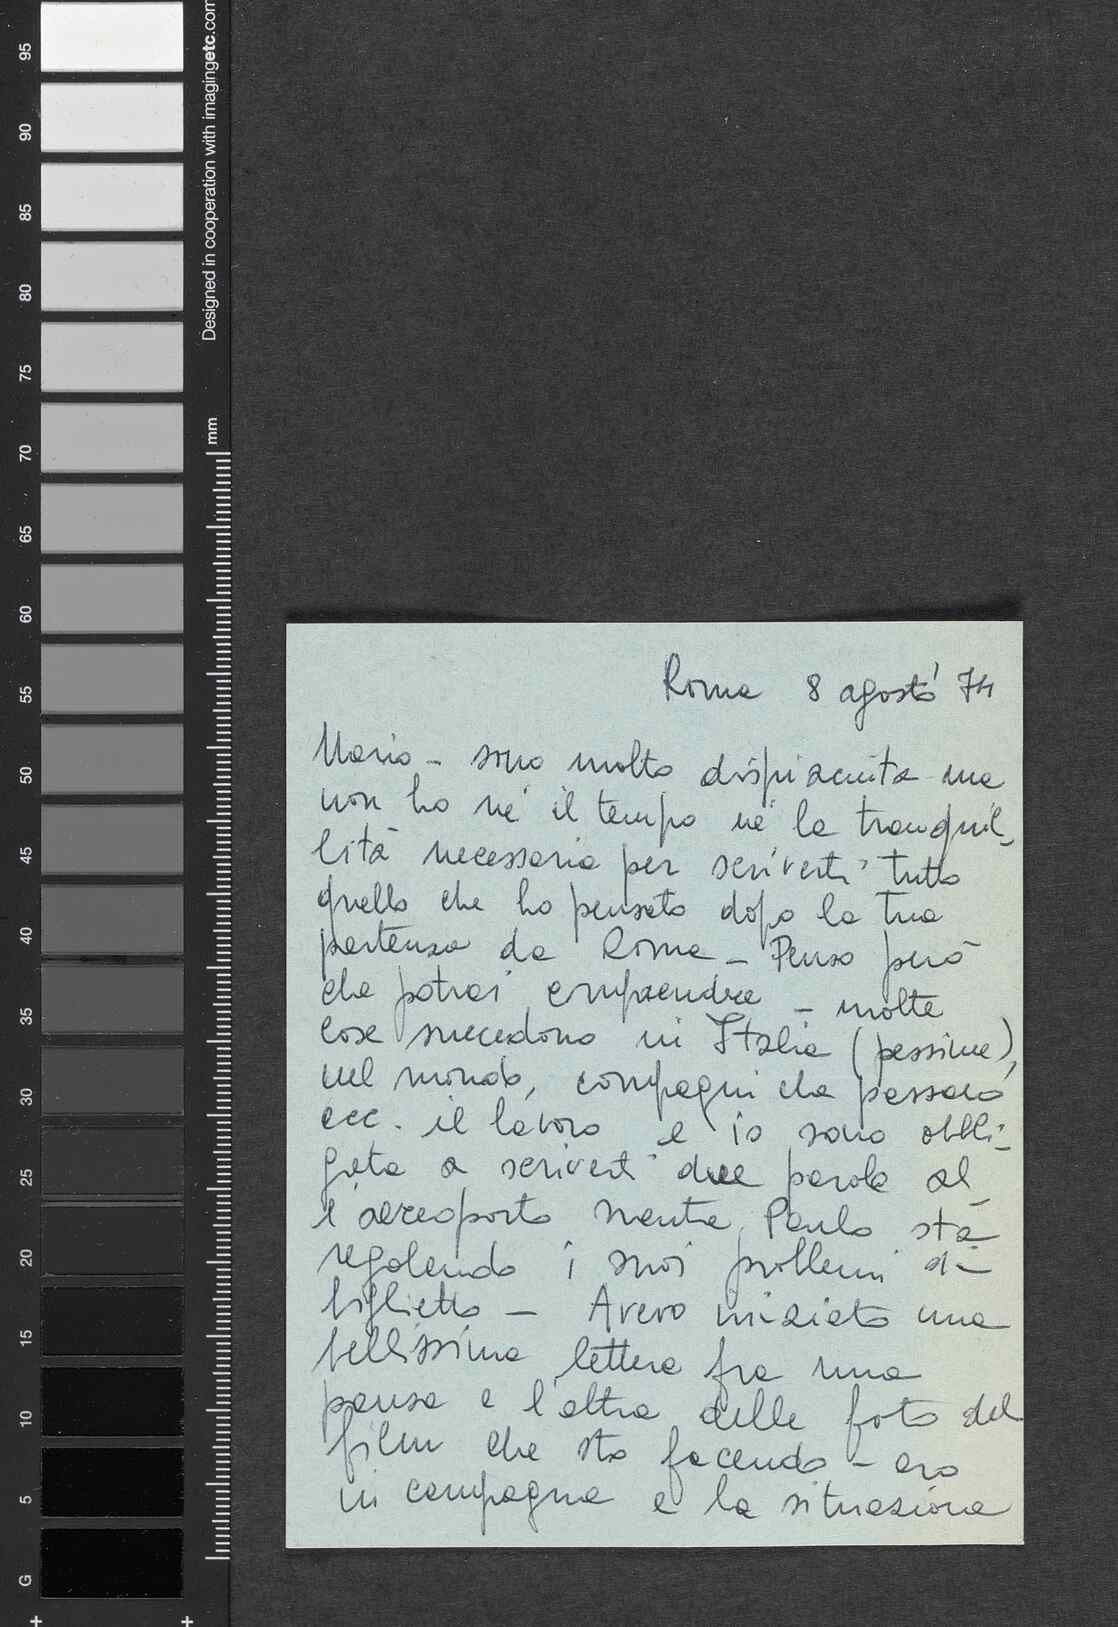 Designed in cooperation with imagingetc.com
mm
95
90
85
80
75
70
65
60
55
50
45
40
35
30
25
20
15
10
5
G
Roma 8 agosto 74
Mario - sono molto dispiaciuta ma
non ho nè il tempo nè la tranquil-
lità necessaria per scriverti tutto
quello che ho pensato dopo la tua
partenza da Roma - Penso però
che potrai comprendre - molte
cose succedono in Italia (pessime),
nel mondo, compagni che passano
ecc. il lavoro e io sono obbli-
gata a scriverti due parole al
l'aereoporto mentre Paulo stà
regolando i suoi problemi di
biglietto - Avevo iniziato una
bellissima lettera fra una
pausa e l'altra delle foto del
film che sto facendo - ero
in campagna e la situazione